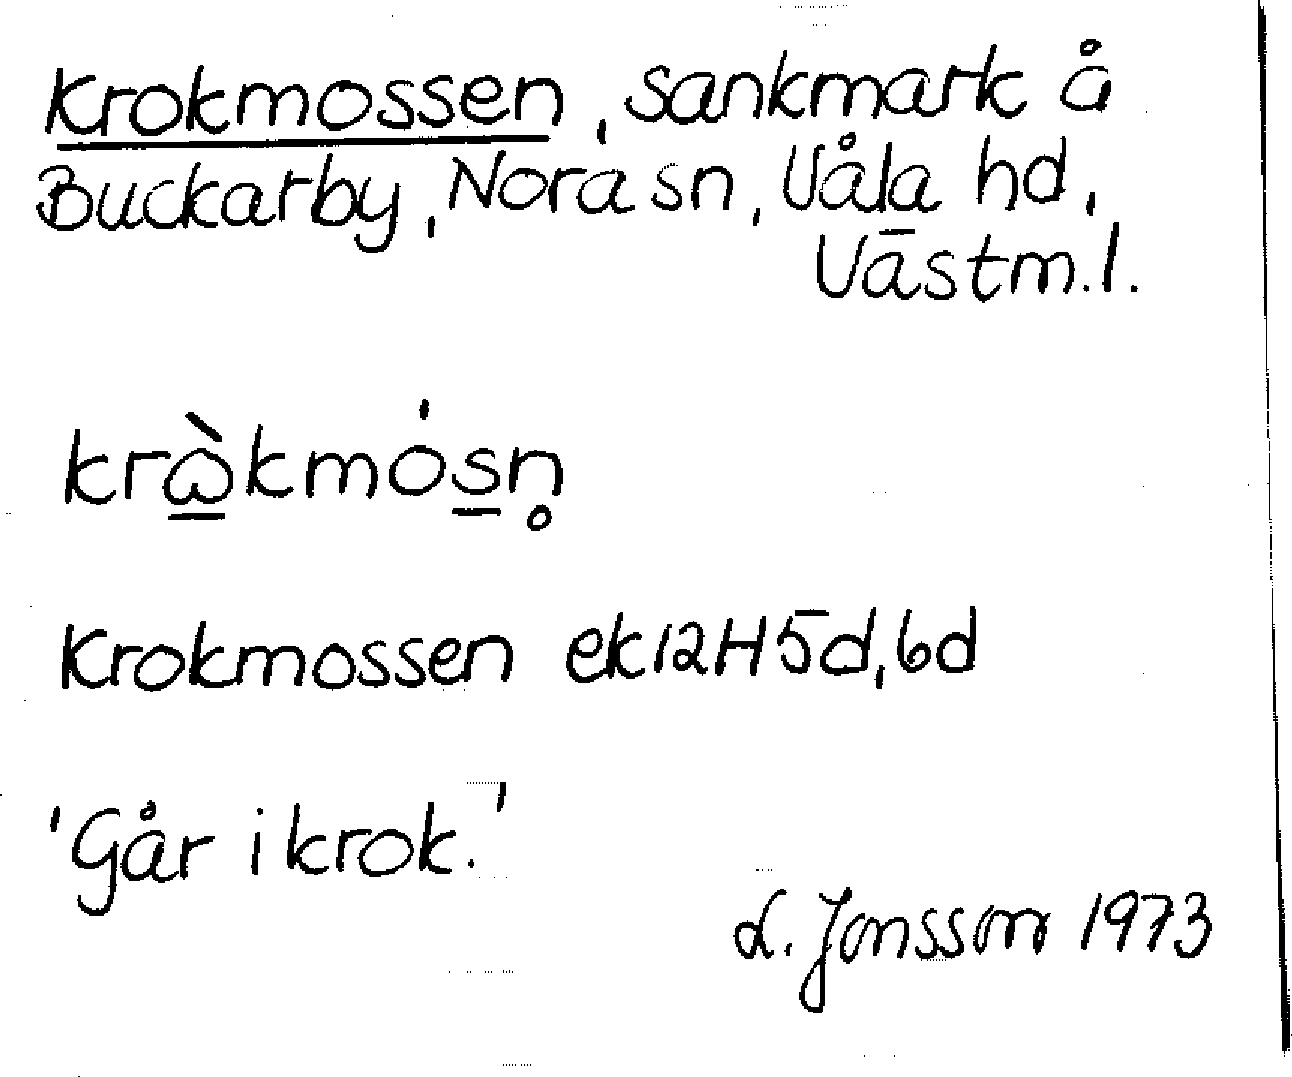 Krokmossen, sankmark å
Buckarby, Nora sn, Våla hd,
Västm. l.
krὼ̲kmós̲n̥
Krokmossen ek 12H 5d, 6d
'Går i krok.'
L. Jonsson 1973